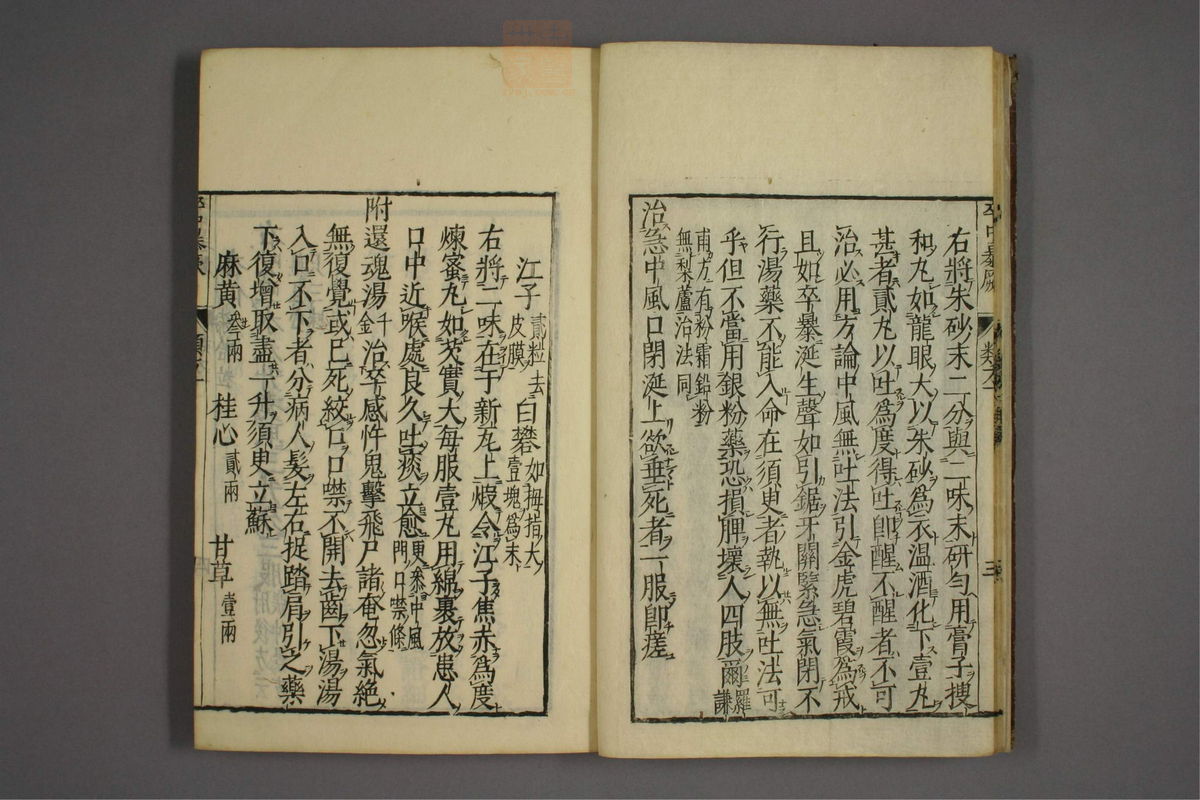 右將朱砂末二分與二味末研勻用膏子搜
和丸如龍眼大以朱砂爲衣溫酒化下壹丸
甚者貳丸以吐爲度得吐卽醒不醒者不可
治必用方論中風無吐法引金虎碧霞爲戒
且如卒暴涎生聲如引鋸牙關緊急氣閉不
行湯藥不能入命在須臾者執以無吐法可
乎但不當用銀粉藥恐損脾壞人四肢爾羅謙
甫方有粉霜鉛粉
無梨蘆治法同
治急中風口閉涎上欲垂死者一服卽瘥
江子貳粒去皮膜白礬如拇指大壹塊爲末
右將二味在于新瓦上煅令江子焦赤爲度
煉蜜丸如芡實大每服壹丸用綿裹放患人
口中近喉處良久吐痰立愈更叅中風門口噤條
附還魂湯千金治卒感忤鬼擊飛尸諸奄忽氣絶
無復覺或已死絞口口噤不開去齒下湯湯
入口不下者分病人髮左右捉踏肩引之藥
下復增取盡一升須臾立蘇
麻黃叄兩桂心貳兩甘草壹兩